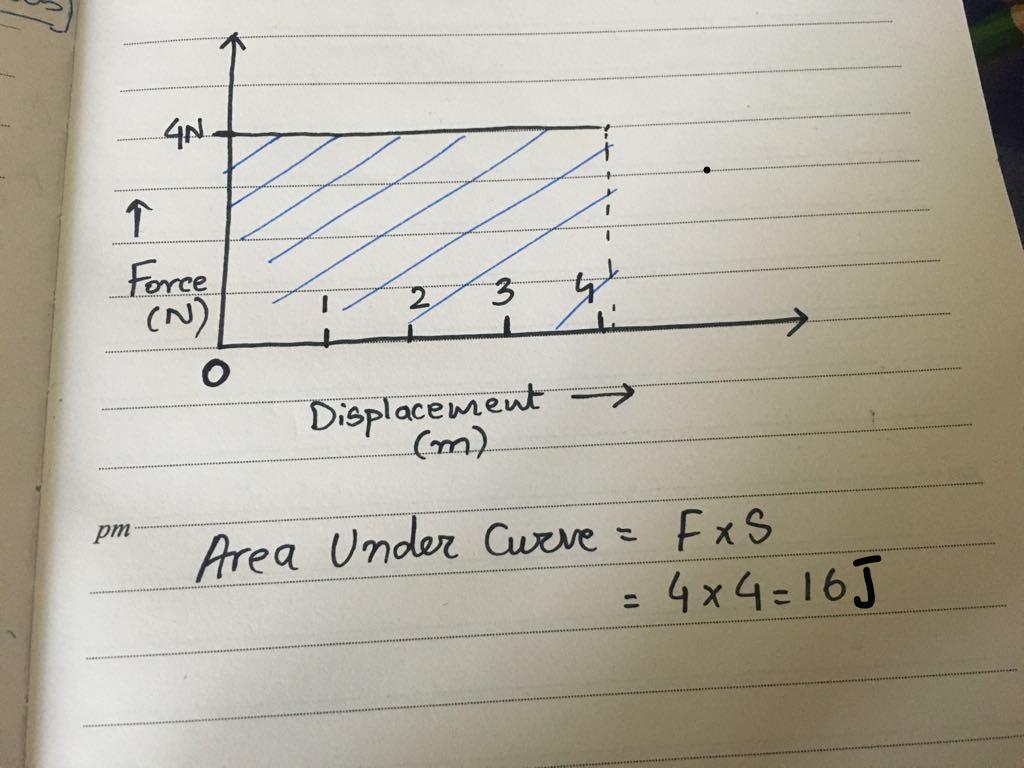 4N
Force
(N)
1 2 3 4
O
Displacement
(m)
pm
Area Under Curve = F x S
= 4 x 4 = 16 J